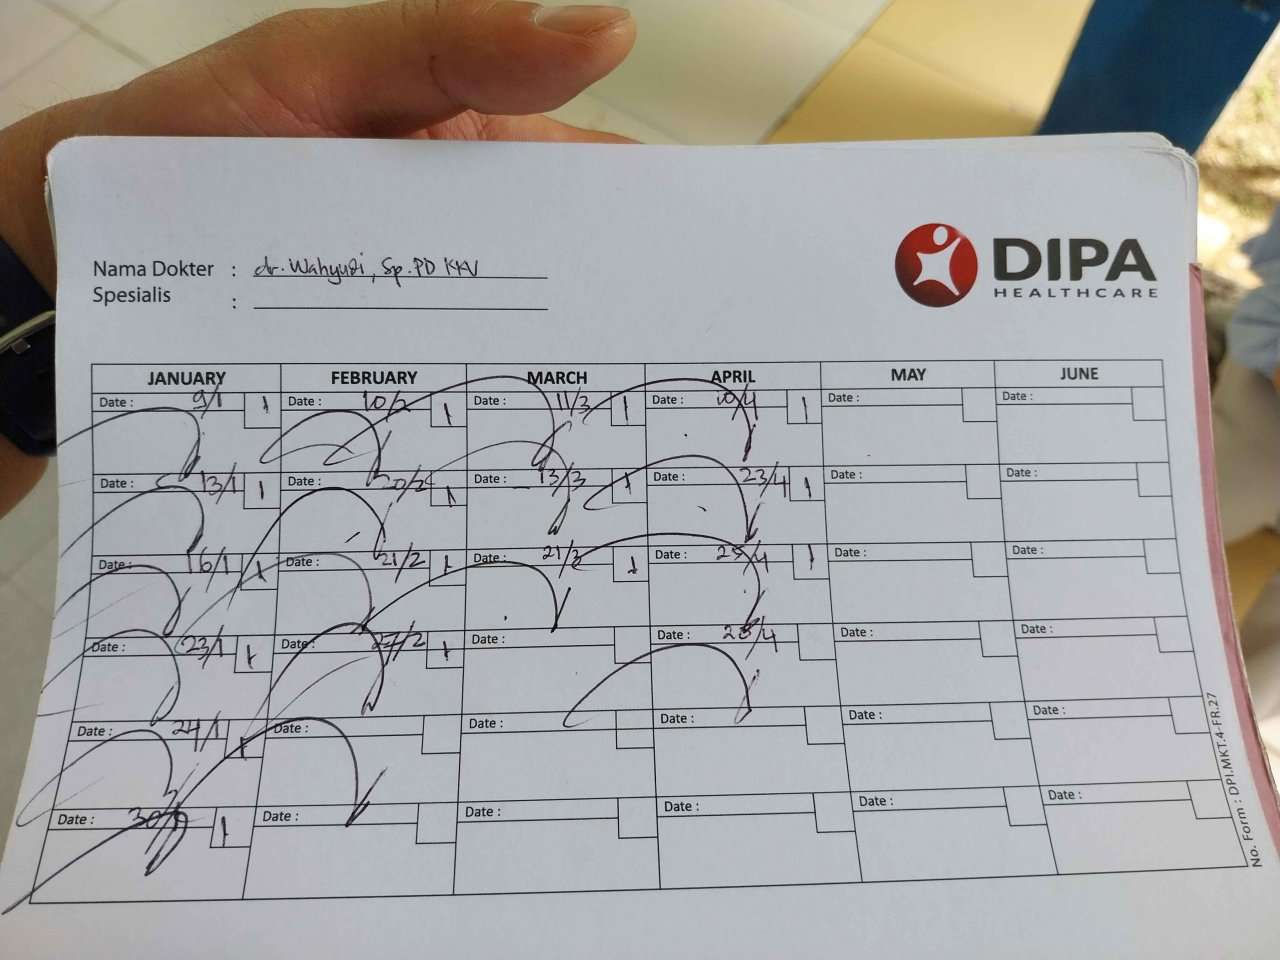 DIPA
HEALTHCARE
Nama Dokter : dr. Wahyudi, Sp.PD KKV
Spesialis :
JANUARY FEBRUARY MARCH APRIL MAY JUNE
Date : 9/1 1 Date : 10/2 1 Date : 11/3 1 Date : 10/4 1 Date : Date :
Date : 13/1 1 Date : 20/2 1 Date : 13/3 1 Date : 23/4 1 Date : Date :
Date : 16/1 1 Date : 21/2 1 Date : 21/3 1 Date : 25/4 1 Date : Date :
Date : 23/1 1 Date : 27/2 1 Date : Date : 28/4 Date : Date :
Date : 24/1 1 Date : Date : Date : Date : Date :
Date : 30/1 1 Date : Date : Date : Date : Date :
No. Form : DPI.MKT.4-FR.27